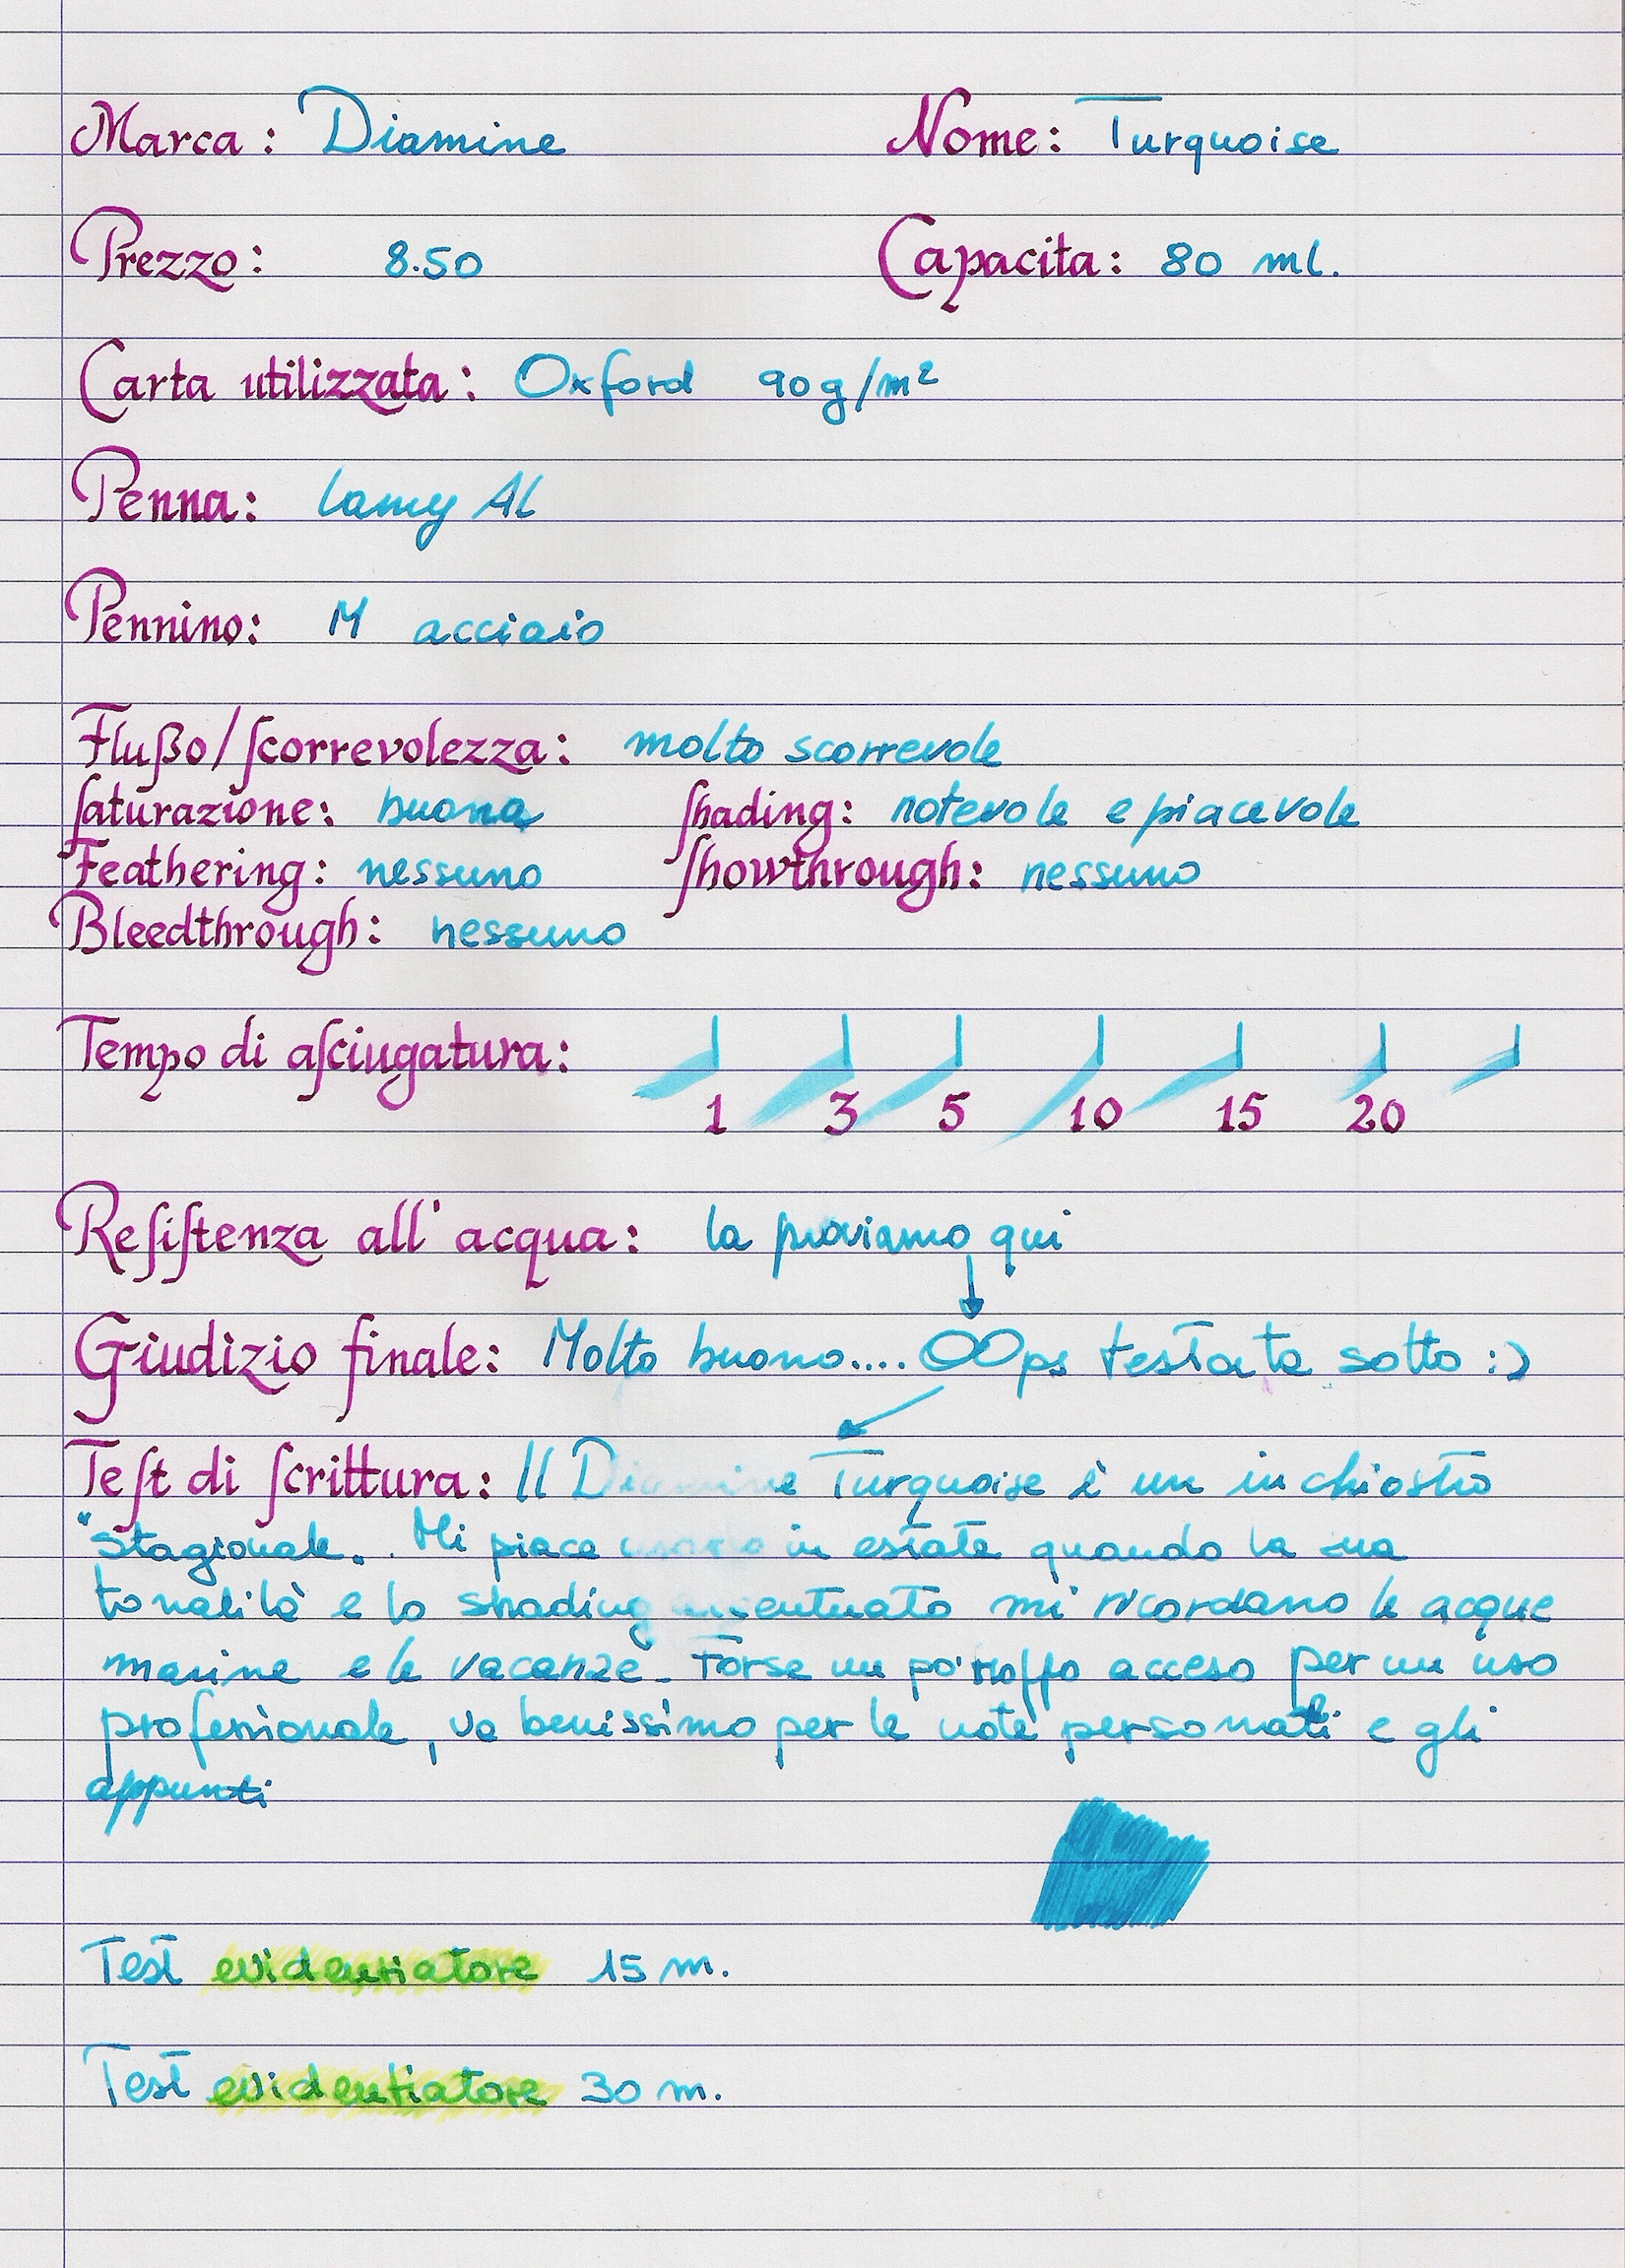 Marca: Diamine Nome: Turquoise
Prezzo: 8.50 Capacita: 80 ml.
Carta utilizzata: Oxford 90g/m²
Penna: Lamy Al
Pennino: M acciaio
Flußo/ſcorrevolezza: molto scorrevole
ſaturazione: buona ſhading: notevole e piacevole
Feathering: nessuno ſhowthrough: nessuno
Bleedthrough: nessuno
Tempo di aſciugatura:
1 3 5 10 15 20
Reſiſtenza all'acqua: la proviamo qui
Giudizio finale: Molto buono.... OOps testata sotto :)
Teſt di ſcrittura: Il Diamine Turquoise è un inchiostro
"stagionale". Mi piace usarlo in estate quando la sua
tonalità e lo shading accentuato mi ricordano le acque
marine e le vacanze. Forse un po' troppo acceso per un uso
professionale, va benissimo per le note personali e gli
appunti
Test evidenziatore 15 m.
Test evidentiatore 30 m.